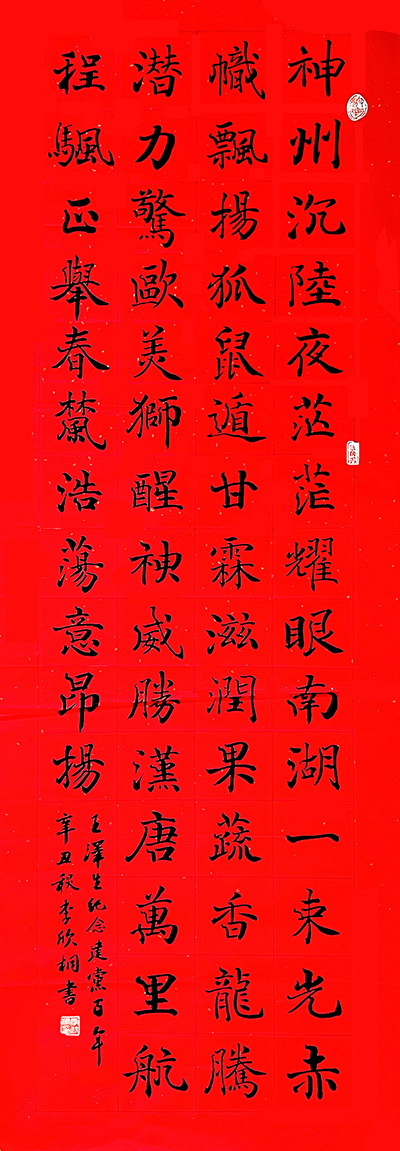 神州沉陸夜茫茫耀眼南湖一束光赤
幟飄揚狐鼠遁甘霖滋潤果蔬香龍騰
潜力驚歐美獅醒神威勝漢唐萬里航
程颿正舉春檒浩蕩意昂揚
王澤生紀念建黨百年
辛丑秋李欣桐書